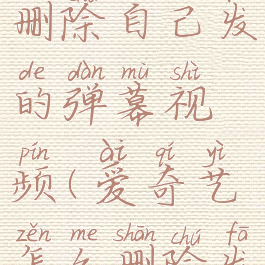 删除自己发
de dàn mù shì
的弹幕视
pín ài qí yì
频(爱奇艺
zěn me shān chú fā
怎么删除发